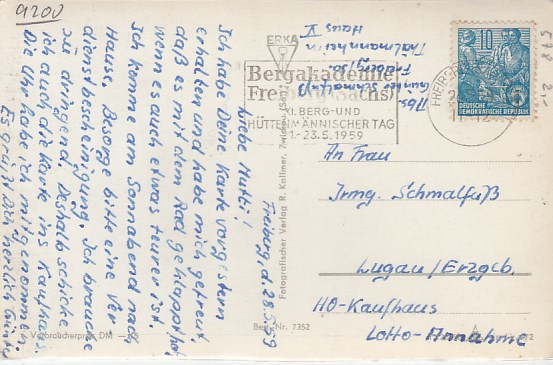 9200
Freiberg, d. 28.5.59
Liebe Mutti!
Ich habe Deine Karte vorgestern
erhalten und habe mich gefreut,
daß es mit dem Rad geklappt hat,
wenn es auch etwas teurer ist.
Ich komme am Sonnabend nach
Hause. Besorge bitte eine Ver
dienstbescheinigung. Ich brauche
sie dringend. Deshalb schicke
ich auch die Karte ins Kaufhaus.
Die Uhr habe ich mitgenommen.
Es grüßt Dich herzlich Günter
Verbraucherpreis DM
Fotografischer Verlag R. Kallmer, Zwickau (Sa.)
Best.-Nr. 7352
ERKA
Bergakademie
Freiberg (Sachs)
XI. BERG-UND
HÜTTENMÄNNISCHER TAG
-23.5.1959
Abs.
Günter Schmalfuß
Freiberg/Sa.
Thälmannheim
Haus V
10
DEUTSCHE
DEMOKRATISCHE REPUBLIK
An Frau
Irmg. Schmalfuß
Lugau/Erzgeb.
HO-Kaufhaus
Lotto-Annahme